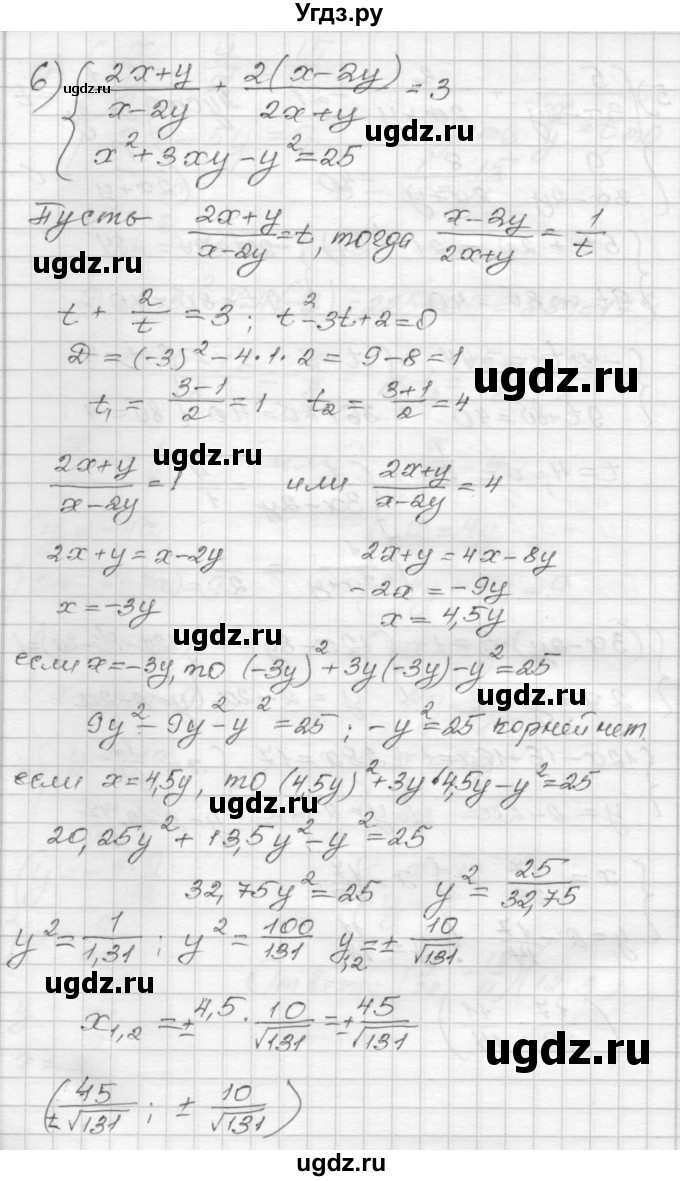 Угдз.ру
6) { (2x+y)/(x-2y) + 2(x-2y)/(2x+y) = 3
x²+3xy-y²=25
ugdz.ru
ugdz.ru
Пусть (2x+y)/(x-2y) = t, тогда (x-2y)/(2x+y) = 1/t
ugdz.ru
t + 2/t = 3; t²-3t+2=0
D = (-3)²-4·1·2 = 9-8=1
ugdz.ru
t₁ = (3-1)/2 = 1 t₂ = (3+1)/2 = 4
ugdz.ru
(2x+y)/(x-2y) = 1 или (2x+y)/(x-2y) = 4
2x+y = x-2y 2x+y = 4x-8y
-2x = -9y
x = -3y x = 4,5y
ugdz.ru
если x=-3y, то (-3y)²+3y(-3y)-y²=25
ugdz.ru
9y²-9y²-y²=25; -y²=25 корней нет
если x=4,5y, то (4,5y)²+3y·4,5y-y²=25
ugdz.ru
20,25y²+13,5y²-y²=25
32,75y²=25 y²=25/32,75
ugdz.ru
y²=1/1,31; y²=100/131 y₁,₂=±10/√131
ugdz.ru
x₁,₂ = ±4,5·10/√131 = ±45/√131
ugdz.ru
(±45/√131; ±10/√131)
ugdz.ru
ugdz.ru